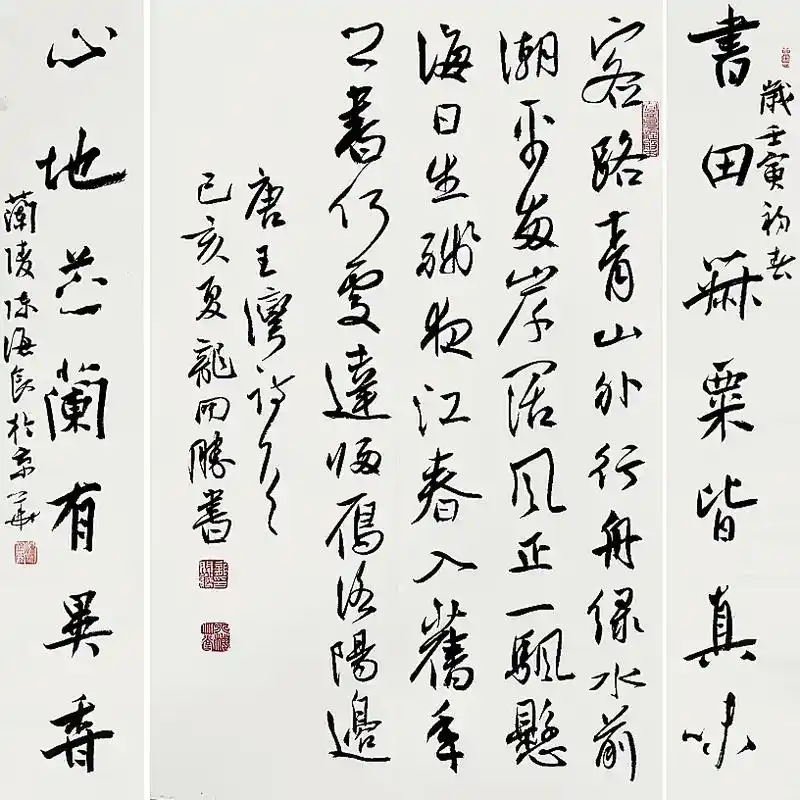 書田菽粟皆真味
歲壬寅初春
客路青山外行舟綠水前
潮平兩岸闊風正一颿懸
海日生殘夜江春入舊年
鄉書何處達歸鴈洛陽邊
唐王灣詩
己亥夏龍開勝書
心地芝蘭有異香
蘭陵陳海良於京華